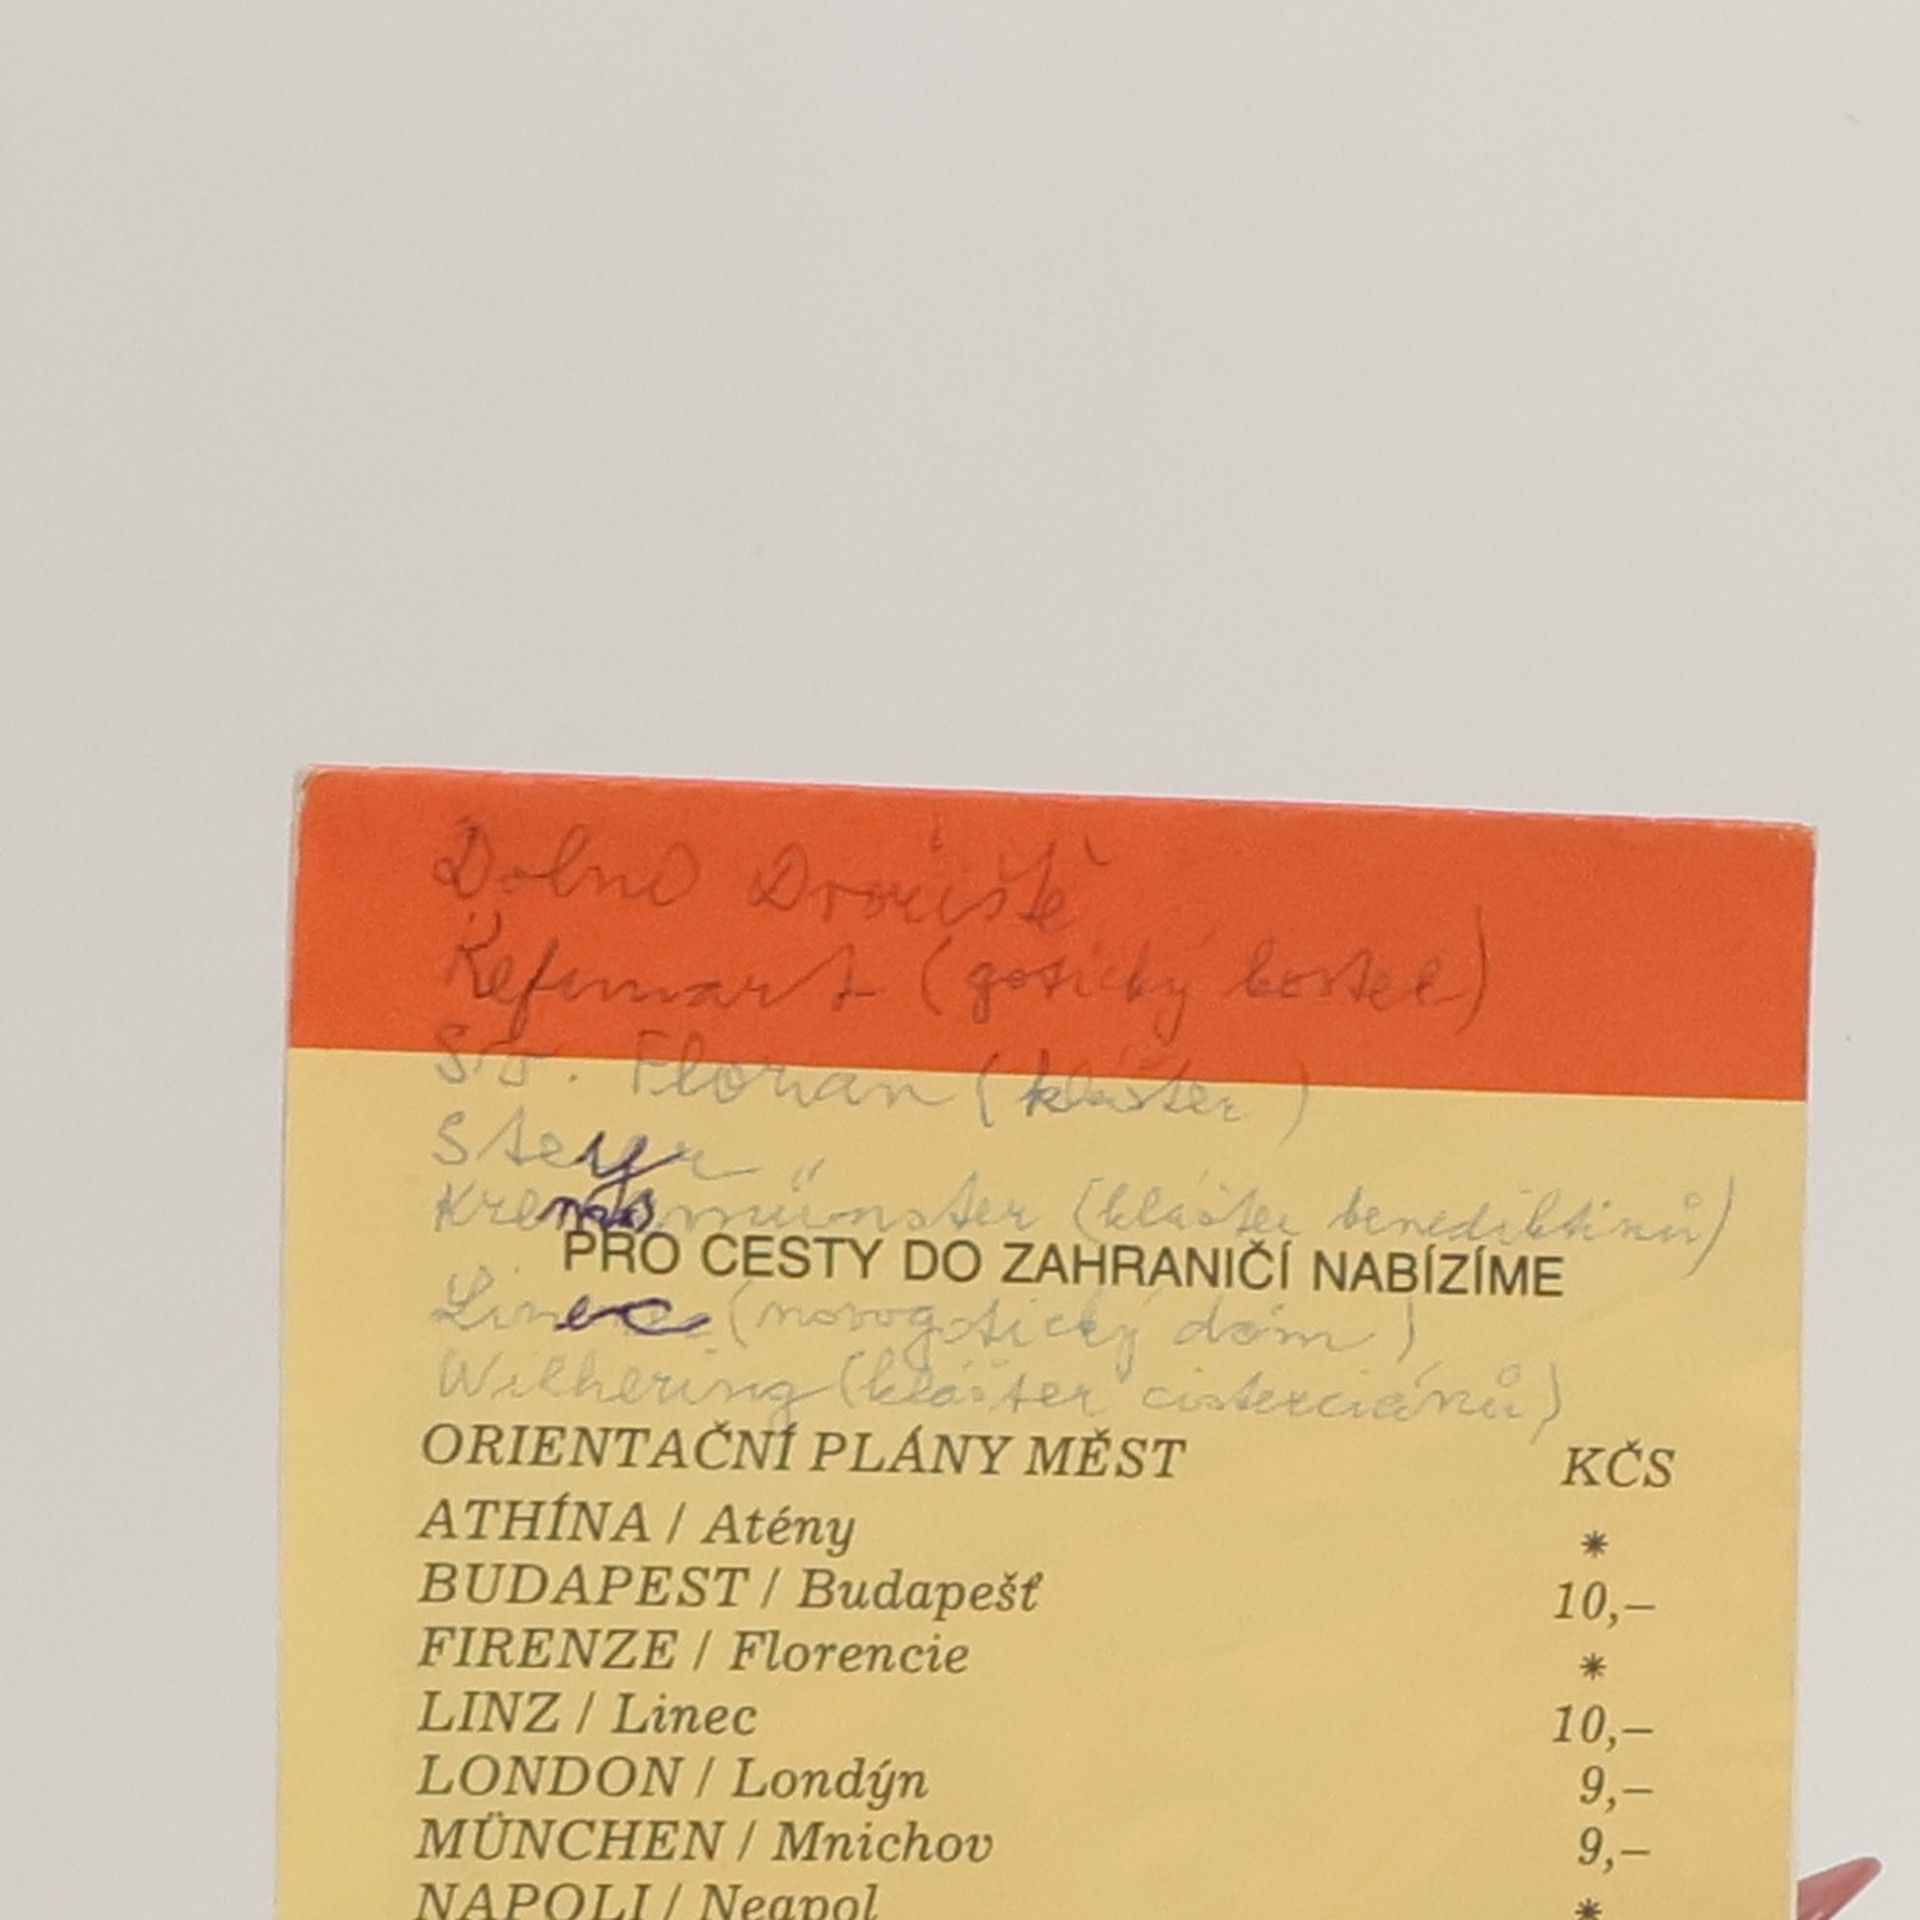 Dolno Dvořiště
Kefermart (gotický kostel)
St. Florian (klášter)
Steyr
Kremsmünster (klášter benediktinů)
PRO CESTY DO ZAHRANIČÍ NABÍZÍME
Linec (novogotický dóm)
Wilhering (klášter cisterciánů)
ORIENTAČNÍ PLÁNY MĚST KČS
ATHÍNA / Atény *
BUDAPEST / Budapešť 10,–
FIRENZE / Florencie *
LINZ / Linec 10,–
LONDON / Londýn 9,–
MÜNCHEN / Mnichov 9,–
NAPOLI / Neapol *